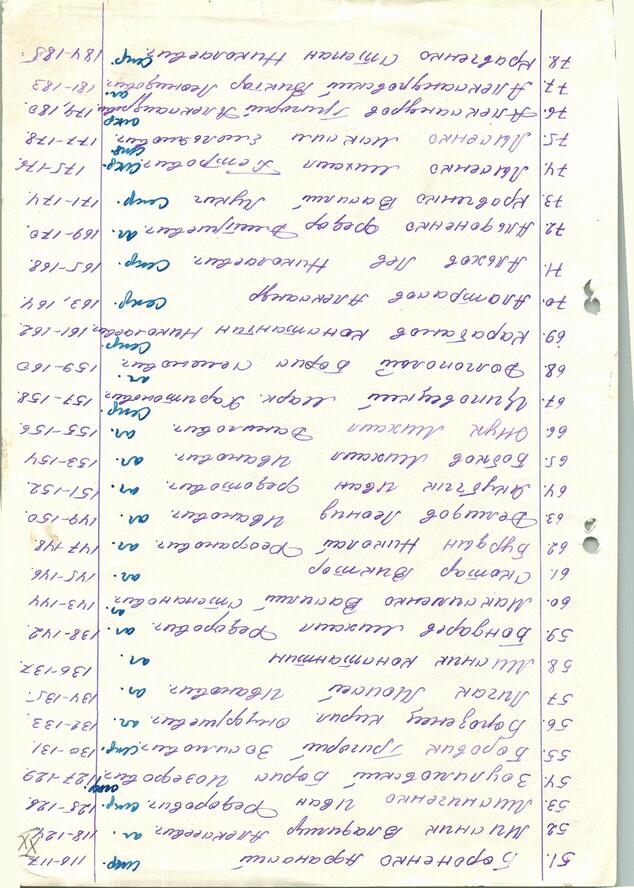 51. Бороненко Афанасий стр 116-117
52. Мысник Владимир Алексеевич. ст. 118-124
53. Мисниченко Иван Федорович. стр. 125-126
54. Зоулиловский Борис Иозефович 127-129
55. Боровик Григорий Зосимович. стр. 130-131
56. Борозенец Кирил Онуфриевич. ст. 132-133
57. Лигак Моисей Иванович. ст. 134-135
58. Мисник Константин ст. 136-137
59. Бондарев Михаил Федорович. ст. 138-142
60. Максименко Василий Степанович. ст 143-144
61. Скотар Виктор ст. 145-146
62. Бурдин Николай Феофанович. ст. 147-148
63. Демидов Леонид Иванович. ст. 149-150
64. Якубчик Иван Федотович. ст. 151-152
65. Бобков Михаил Иванович ст. 153-154
66. Жук Михаил Данилович. ст. 155-156
67. Циповецкий Марк Харитонович. стр. 157-158
68. Долгополой Борис Семенович. ст. 159-160
69. Карабанов Константин Николаевич, стр. 161-162
70. Алатралов Александр стр. 163, 164
71. Альхов Лев Николаевич. стр. 165-168
72. Альдоненко Федор Дмитриевич. ст. 169-170
73. Кравченко Василий Лукич стр. 171-174
74. Лысенко Михаил Петрович. стр. 175-176
75. Лысенко Максим Емельянович. стр 177-178
76. Александров Григорий Александрович, стр 179, 180
77. Александровский Виктор Леонидович. ст. 181-183
78. Кравченко Степан Николаевич. стр. 184-185